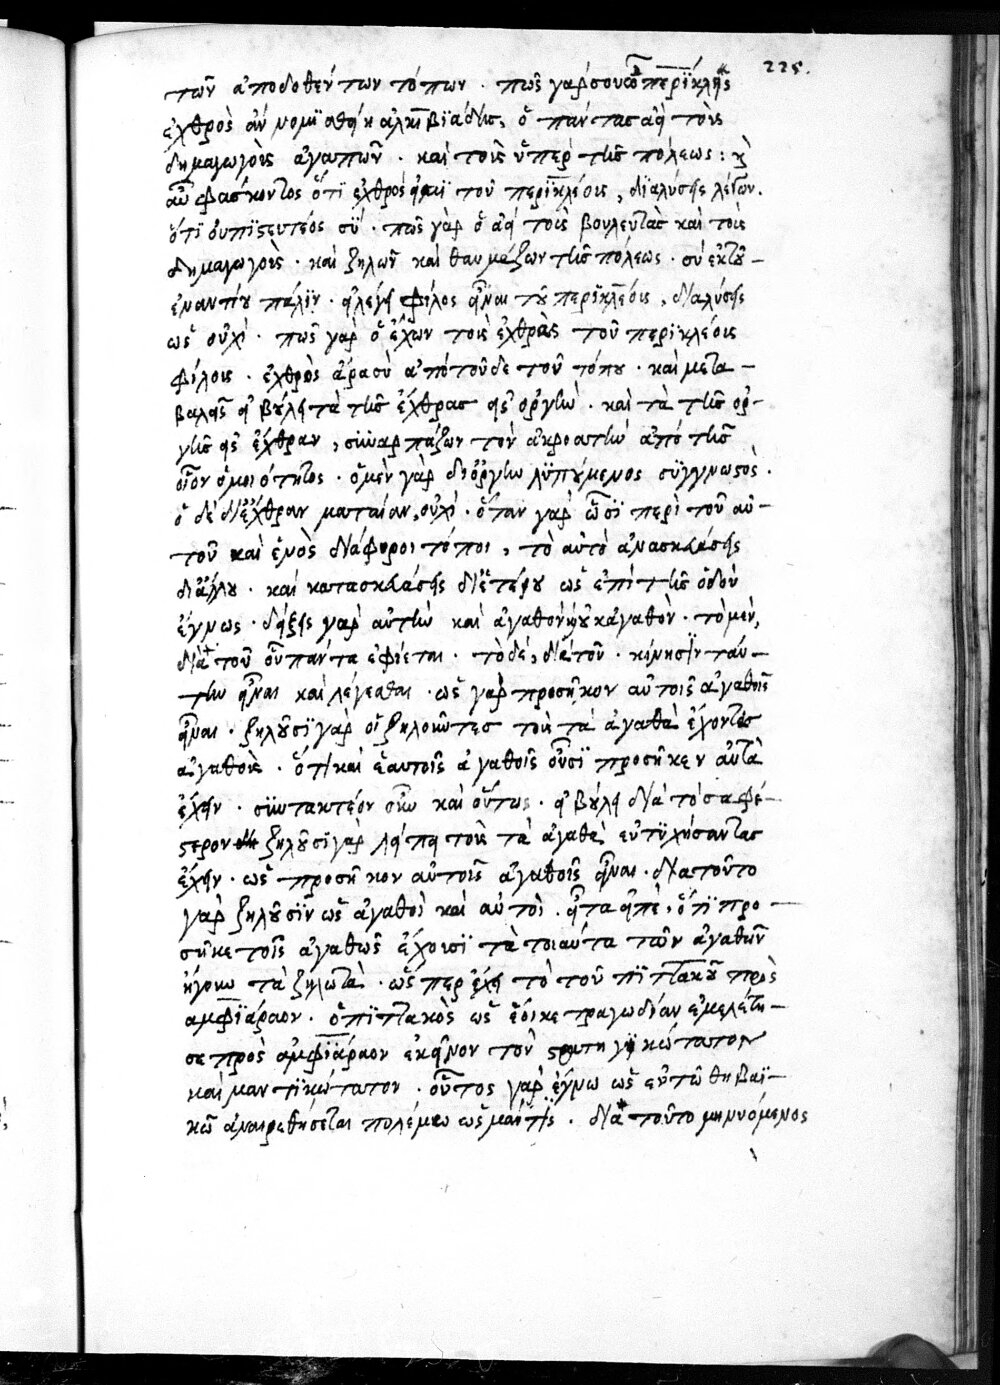 225.
τῶν ἀποδοθέντων τόπων · πῶς γάρ σου ὁ περϊκλῆς
ἐχθρὸς ἂν νομϊσθείη κ ἀλκιβϊάδης, ὁ πάντας ἀεὶ τοὺς
δημαγωγοὺς ἀγαπῶν · καὶ τοὺς ὑπὲρ τῆς πόλεως : κỳ
αὖ φάσκοντος ὅτϊ ἐχθρός εἰμϊ τοῦ περϊκλέους, δϊαλύσεις λέγων.
ὅτϊ οὐ πϊστευτέος σύ · πῶς γὰρ ὁ ἀεὶ τοὺς βουλευτὰς καὶ τοὺς
δημαγωγοὺς · καὶ ζηλῶν καὶ θαυμάζων τῆς πόλεως · σὺ ἐκ τοῦ
ἐναντίου πάλϊν · εἰ λέγει φίλος εἶναι τοῦ περϊκλέους, διαλύσεις
ὡς οὐχὶ · πῶς γὰρ ὁ ἔχων τοὺς ἐχθροὺς τοῦ περϊκλέους
φίλους · ἐχθρὸς ἄρα σὺ ἀπὸ τοῦδε τοῦ τόπου · καὶ μετα
βαλεῖς εἰ βούλει τὰ τῆς ἔχθρας εἰς ὀργὴν · καὶ τὰ τῆς ὀρ
γῆς εἰς ἔχθραν, συναρπάζων τὸν ἀκροατὴν ἀπὸ τῆς
οἷον ὁμοιότητος · ὁ μὲν γὰρ δι ὀργὴν λϋπούμενος σϋγγνωστὸς ·
ὁ δὲ δι ἔχθραν ματαίαν, οὐχὶ · ὅταν γὰρ ὦσϊ περὶ τοῦ αὐ
τοῦ καὶ ἑνὸς διάφοροι τόποι, τὸ αὐτὸ ἀνασκευάσεις
δι ἄλλου · καὶ κατασκευάσεις δι ἑτέρου ὡς ἐπὶ τῆς ὁδοῦ
ἔγνως · δείξεις γὰρ αὐτὴν καὶ ἀγαθὸν καὶ οὐκ ἀγαθὸν · τὸ μὲν,
διὰ τοῦ οὗ πάντα ἐφίεται · τὸ δέ, διὰ τοῦ · κίνησϊν ταύ
την εἶναι καὶ λέγεσθαι · ὡς γὰρ προσῆκον αὐτοῖς ἀγαθοῖς
εἶναι · ζηλοῦσϊ γὰρ οἱ ζηλοῦντες τοὺς τὰ ἀγαθὰ ἔχοντας
ἀγαθοὺς · ὅτϊ καὶ ἑαυτοῖς ἀγαθοῖς οὖσϊ προσῆκεν αὐτὰ
ἔχειν · συντακτέον οὖν καὶ οὕτως · εἰ βούλει διὰ τὸ σαφέ
στερον ζηλοῦσϊ γὰρ λείπει τοὺς τὰ ἀγαθὰ εὐτϋχήσαντας
ἔχειν · ὡς προσῆκον αὐτοῖς ἀγαθοῖς εἶναι · διὰ τοῦτο
γὰρ ζηλοῦσϊν ὡς ἀγαθοὶ καὶ αὐτοὶ · εἶτα εἶπε, ὅτϊ προ
σῆκε τοῖς ἀγαθῶς ἔχουσϊ τὰ τοιαῦτα τῶν ἀγαθῶν
ἤγουν τὰ ζηλωτὰ · ὥσπερ ἔχει τὸ τοῦ πϊττακοῦ πρὸς
ἀμφϊάραον · ὁ πϊττακὸς ὡς ἔοικε τραγωδίαν ἐμελέτη
σε πρὸς ἀμφϊάραον ἐκεῖνον τὸν στρατηγϊκώτατον
καὶ μαντϊκώτατον · οὗτος γὰρ ἔγνω ὡς ἐν τῶ θηβαϊ
κῶ ἀναιρεθήσεται πολέμω ὡς μάντϊς · διὰ τοῦτο μηνυόμενος